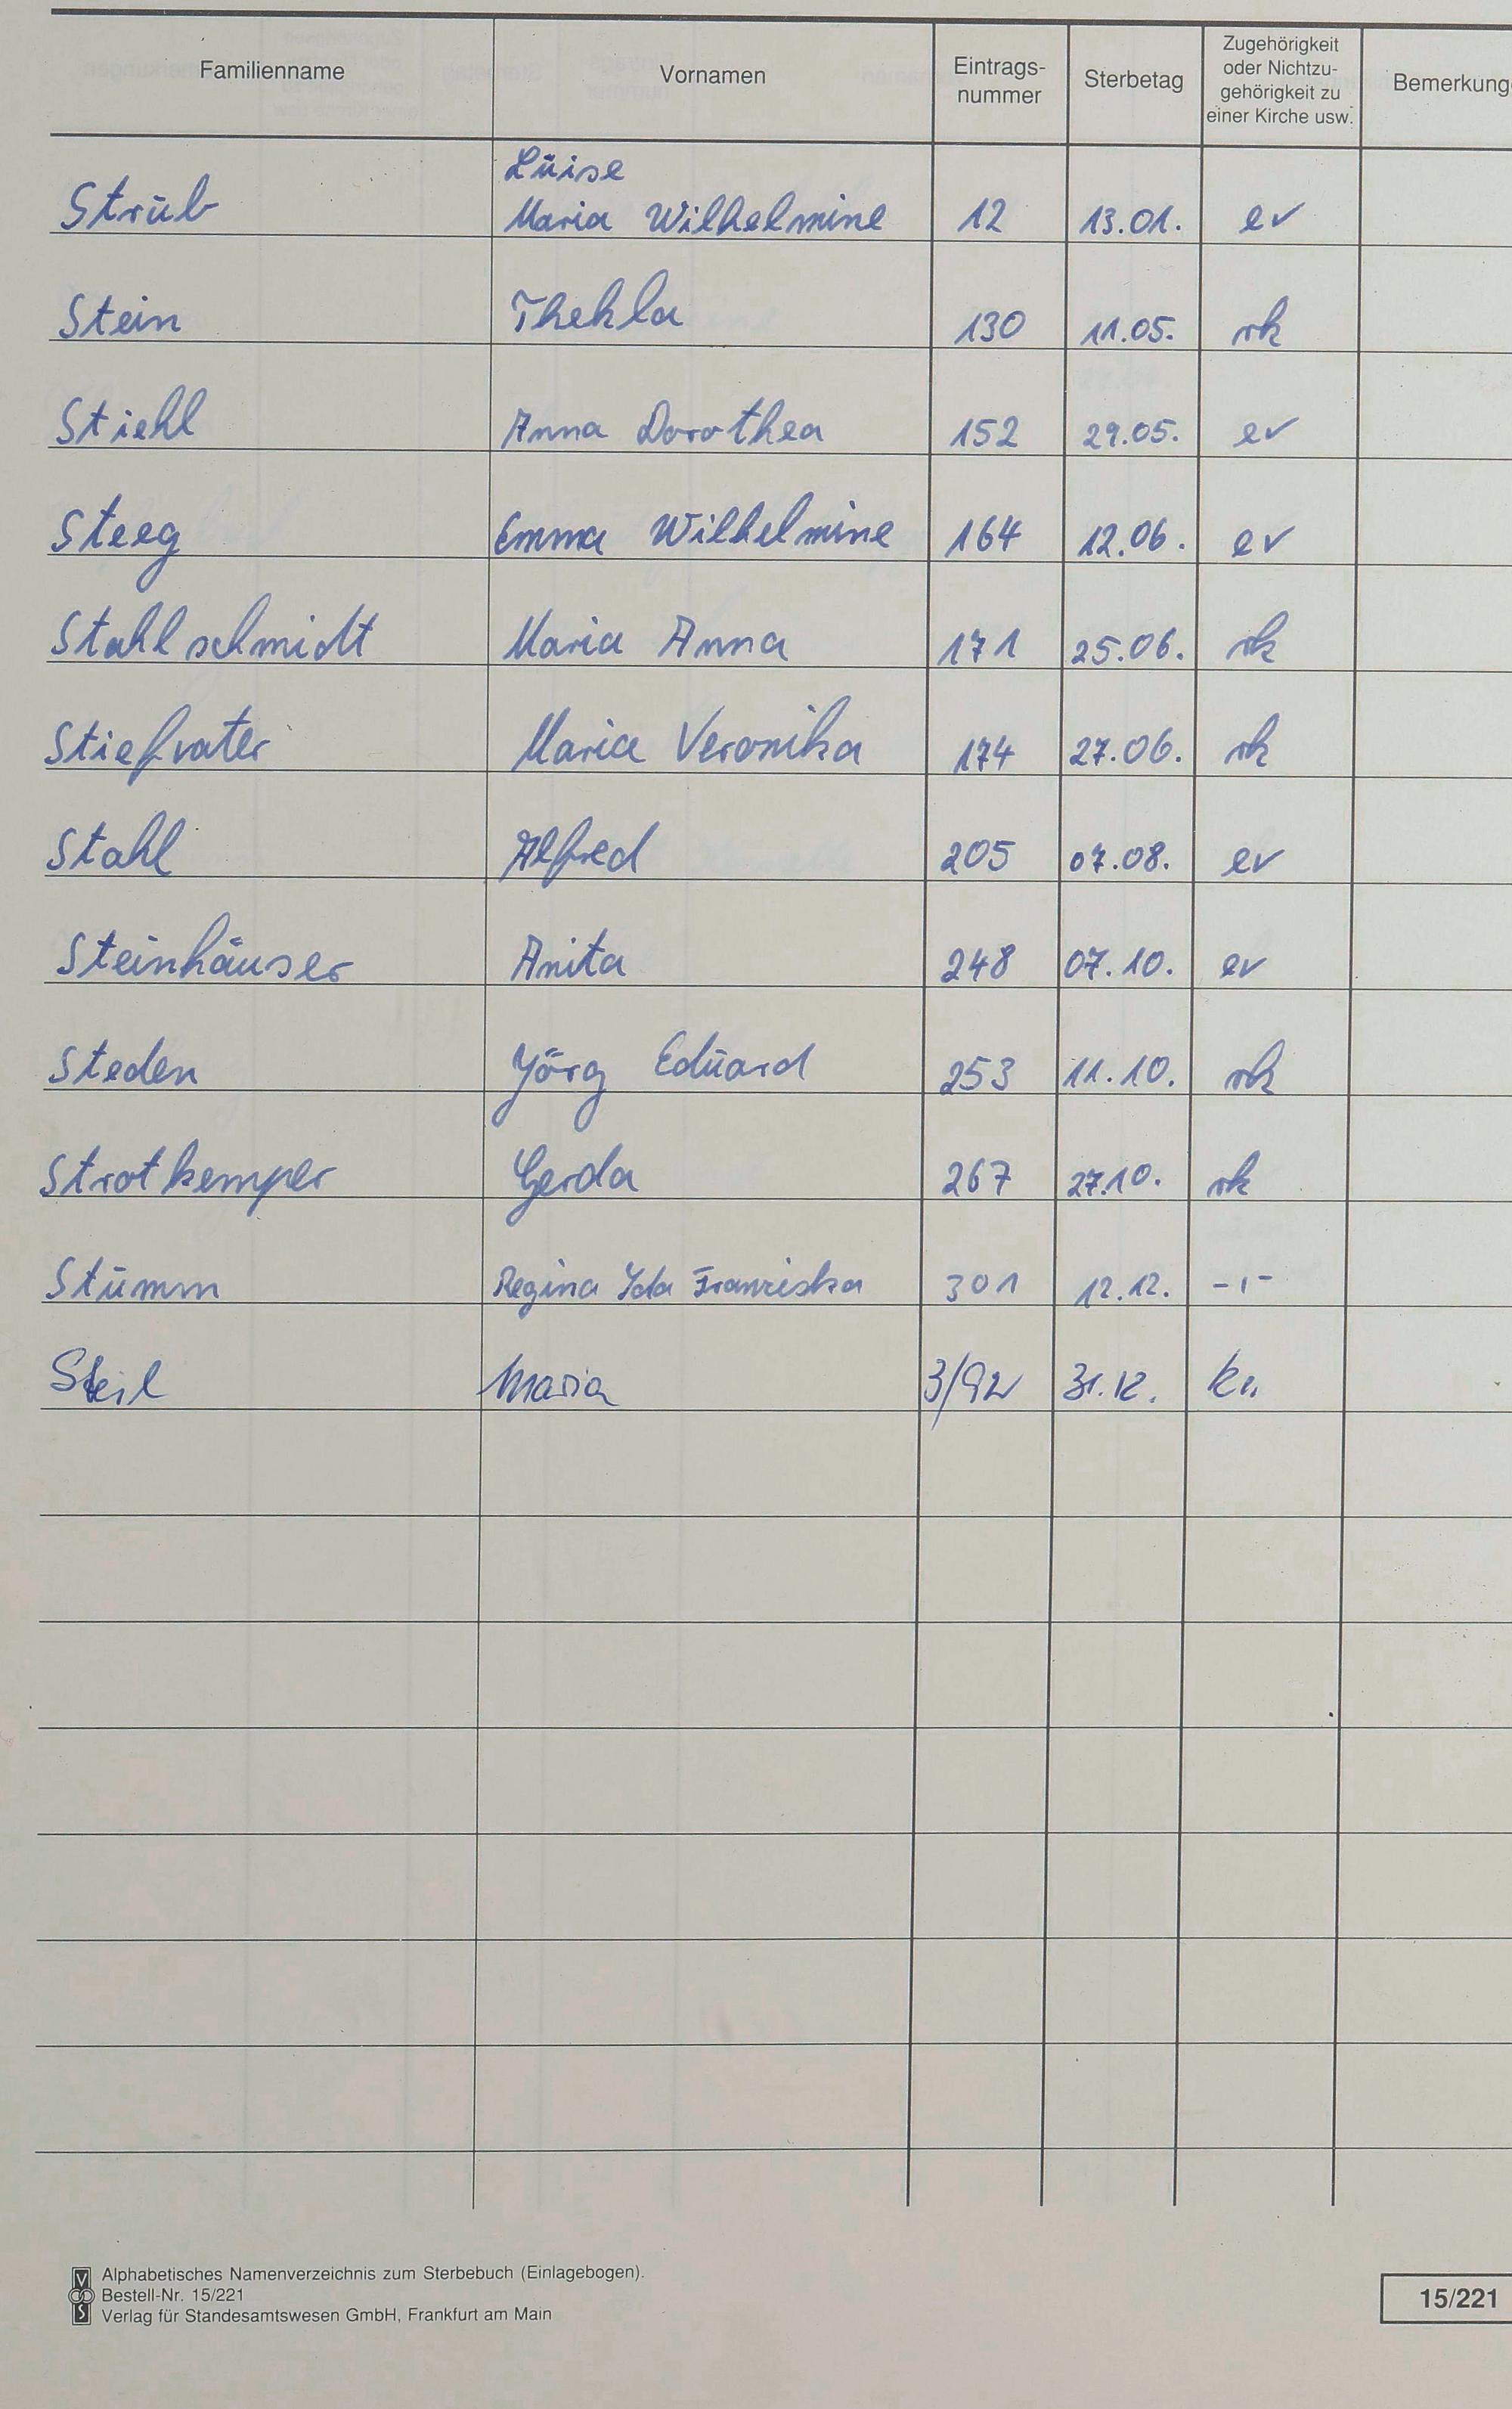 Familienname Vornamen Eintrags-nummer Sterbetag Zugehörigkeit oder Nichtzu-gehörigkeit zu einer Kirche usw. Bemerkung
Luise
Strub Maria Wilhelmine 12 13.01. ev
Stein Thekla 130 11.05. rk
Stiehl Anna Dorothea 152 29.05. ev
Steeg Emma Wilhelmine 164 12.06. ev
Stahlschmidt Maria Anna 171 25.06. rk
Stiefvater Maria Veronika 174 27.06. rk
Stahl Alfred 205 07.08. ev
Steinhäuser Anita 248 07.10. ev
Steden Jörg Eduard 253 11.10. rk
Strotkemper Gerda 267 27.10. rk
Stumm Regina Ida Franziska 301 12.12. -"-
Steil Maria 3/92 31.12.
Alphabetisches Namenverzeichnis zum Sterbebuch (Einlagebogen).
Bestell-Nr. 15/221
Verlag für Standesamtswesen GmbH, Frankfurt am Main
15/221